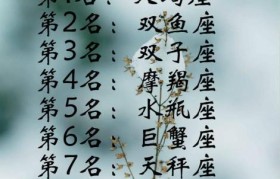 第1名： 座
第2名：双鱼座
第3名：双子座
第4名：摩羯座
第5名：水瓶座
第6名：巨蟹座
第7名：天秤座